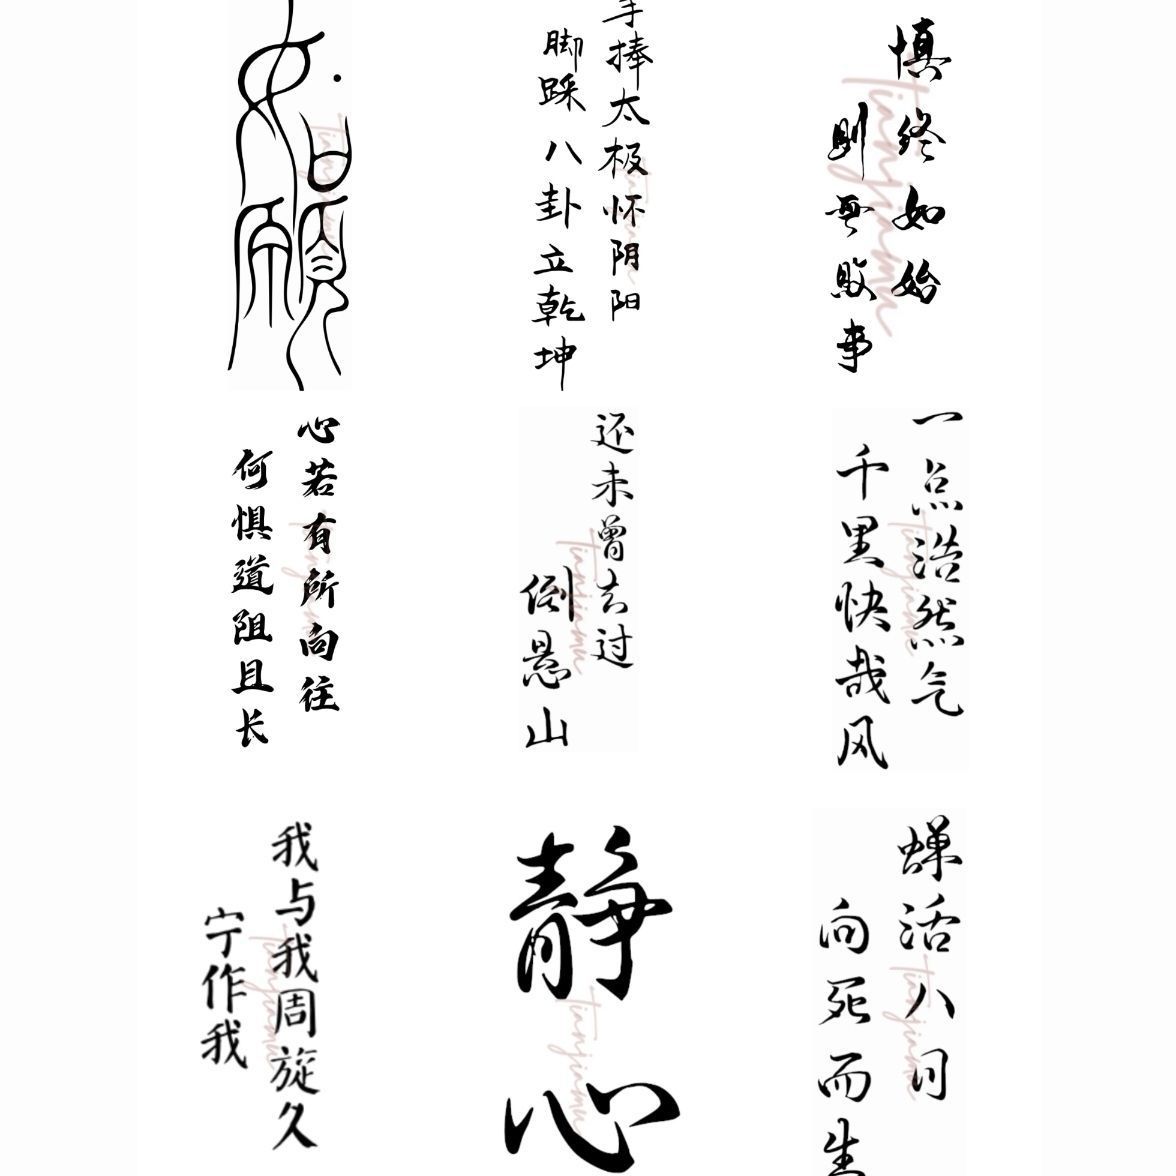 如願
手捧太极怀阴阳
脚踩八卦立乾坤
慎终如始
则無败事
tianjiamu
心若有所向往
何惧道阻且长
tianjiamu
还未曾去过
倒悬山
tianjiamu
一点浩然气
千里快哉风
tianjiamu
我与我周旋久
宁作我
tianjiamu
静心
tianjiamu
蝉活八日
向死而生
tianjiamu